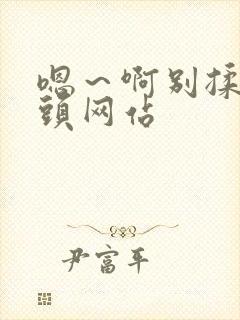 嗯～啊别揉
頭网佔
尹富平